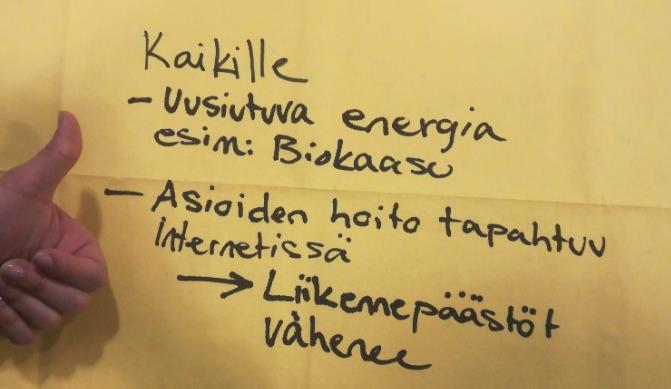 Kaikille
- Uusiutuva energia
esim: Biokaasu
- Asioiden hoito tapahtuu
internetissä
→ Liikennepäästöt
vähenee